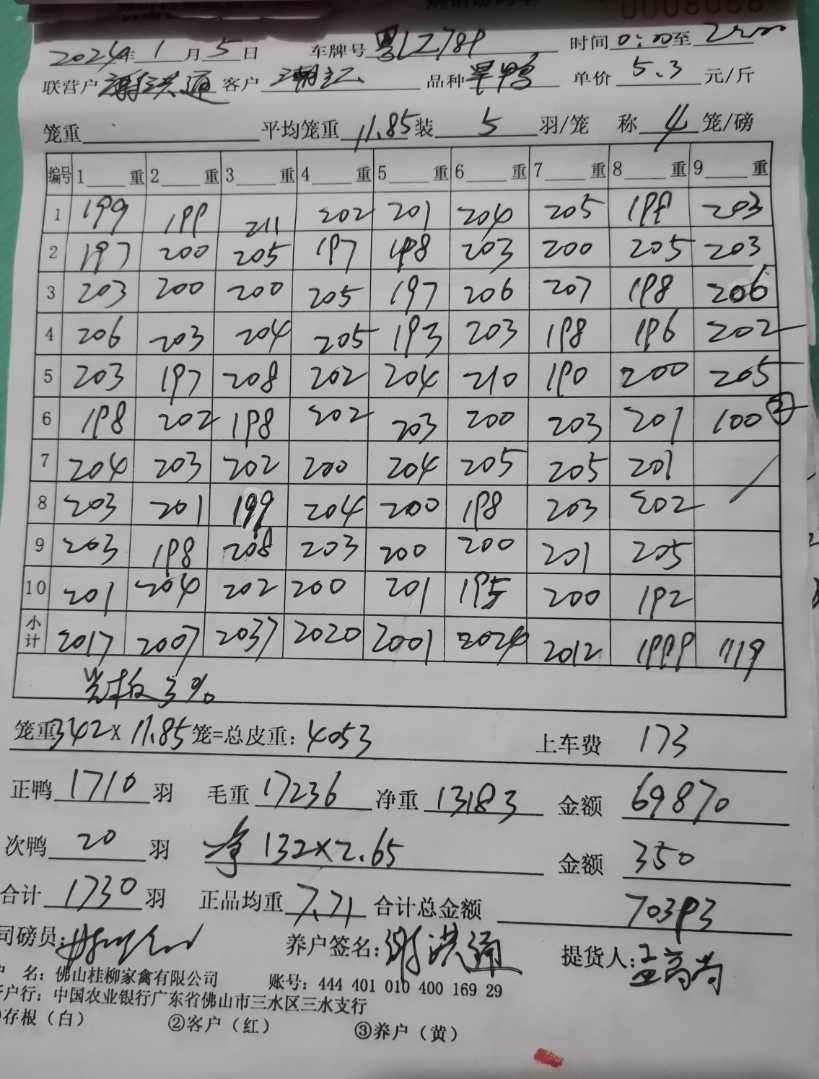 0008068
2024年1月5日 车牌号 粤LZ789 时间0:00至2:00
联营户 谢洪通 客户 潮江 品种 旱鸭 单价 5.3 元/斤
笼重 平均笼重 11.85 装 5 羽/笼 称 4 笼/磅
编号 1 重 2 重 3 重 4 重 5 重 6 重 7 重 8 重 9 重
1 199 199 211 202 201 204 205 199 203
2 197 200 205 197 198 203 200 205 203
3 203 200 200 205 197 206 207 198 206
4 206 203 204 205 193 203 198 196 202
5 203 197 208 202 204 210 190 200 205
6 198 202 198 202 203 200 203 201 100 ②
7 204 203 202 200 204 205 205 201
8 203 201 199 204 200 198 203 202
9 203 198 208 203 200 200 201 205
10 201 204 202 200 201 195 200 192
小计 2017 2007 2037 2020 2001 2024 2012 1999 1119
3%
笼重342×11.85笼=总皮重:4053 上车费 173
正鸭 1710 羽 毛重 17236 净重 13183 金额 69870
次鸭 20 羽 净 132×2.65 金额 350
合计 1730 羽 正品均重 7.71 合计总金额 70393
司磅员: 养户签名:谢洪通 提货人:孟高尚
户 名:佛山桂柳家禽有限公司 账号:444 401 010 400 169 29
开户行:中国农业银行广东省佛山市三水区三水支行
①存根(白) ②客户(红) ③养户(黄)